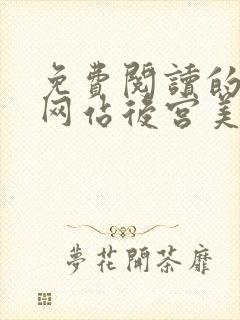 免費閱讀的
网佔後宮美
夢花開茶靡